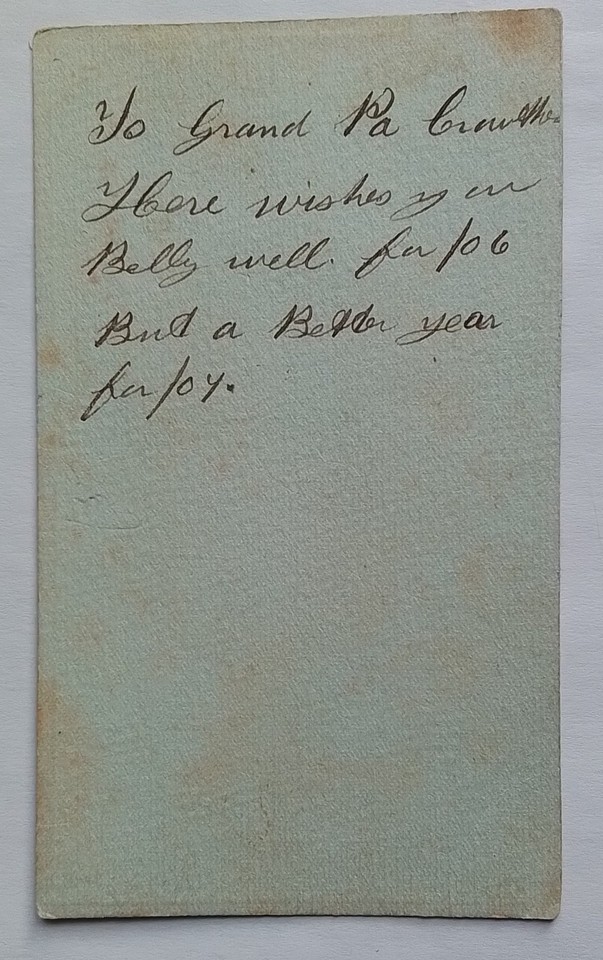 To Grand Pa
Here wishes you
Belly well. for /06
But a Better year
for /07.